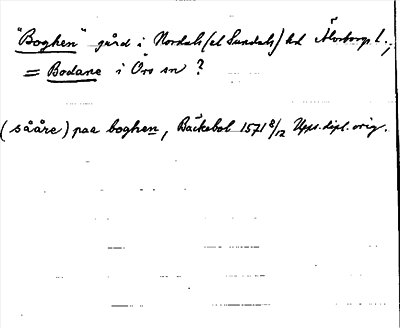 "Boghen" gård i Nordals (el Sundals) hd Älvsborgs l.;
= Bodane i Örs sn ?
(sååre) paa boghen, Bäckebol 1571 8/12 Upps. dipl. orig.